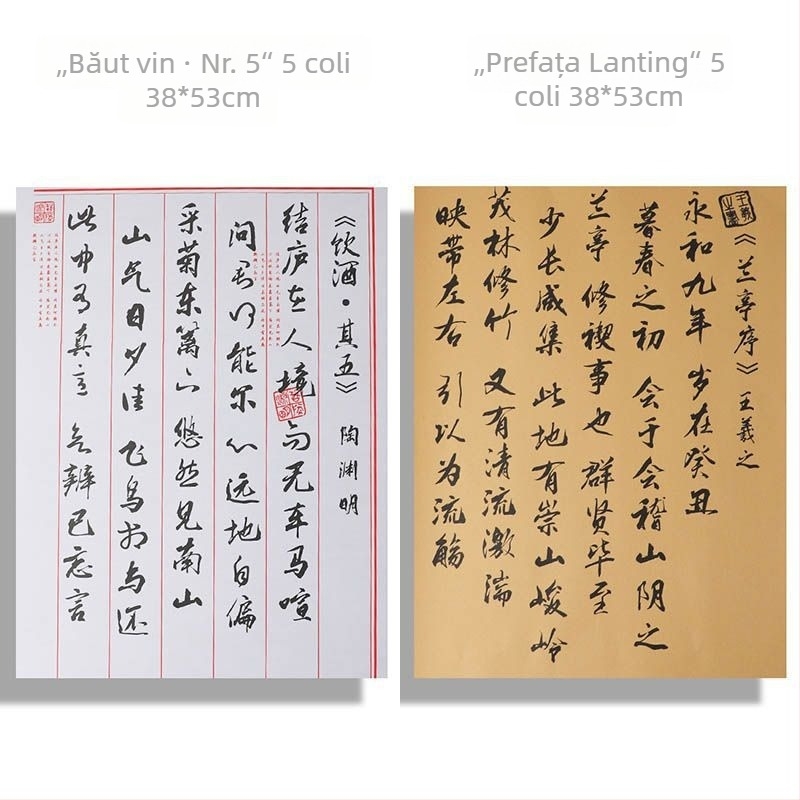 „Băut vin · Nr. 5“ 5 coli
38*53cm
„Prefața Lanting“ 5
coli 38*53cm
《饮酒·其五》 陶渊明
结庐在人境 而无车马喧
问君何能尔 心远地自偏
采菊东篱下 悠然见南山
山气日夕佳 飞鸟相与还
此中有真意 欲辨已忘言
《兰亭序》 王羲之
永和九年 岁在癸丑
暮春之初 会于会稽山阴之
兰亭 修禊事也 群贤毕至
少长咸集 此地有崇山峻岭
茂林修竹 又有清流激湍
映带左右 引以为流觞